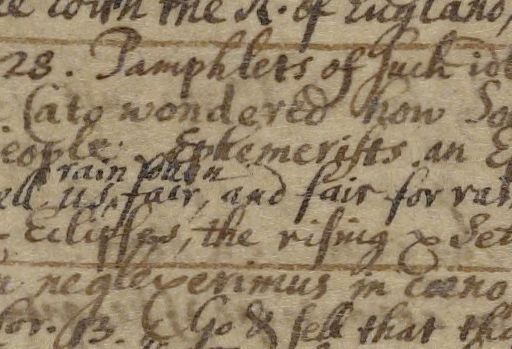 with the K. of England,
28. Pamphlets of such idl
Cato wondered how So
people. Ephemerists an E
rain when
ell us fair, and fair for rain
Eclipses, the rising & Set
neglexerimus in cœno
for. β. Go & sell that tho